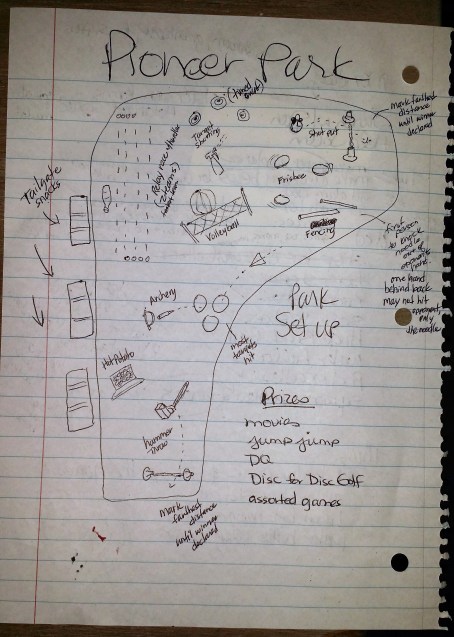 Pioneer Park
(timed event)
Target
shooting
Shot put
mark farthest
distance
until winner
declared
Relay race
(2 teams)
Frisbee
Tailgate
snacks
Volleyball
Fencing
first
person
to knock
needle
out of
opponents
hand.
one hand
behind back
may not hit
opponent,
only
the needle
Archery
most
targets
hit
Park
Set up
Hot Potato
hammer
throw
Mark
farthest
distance
until winner
declared
Prizes
movies
jump jump
DQ
Disc for Disc Golf
assorted games